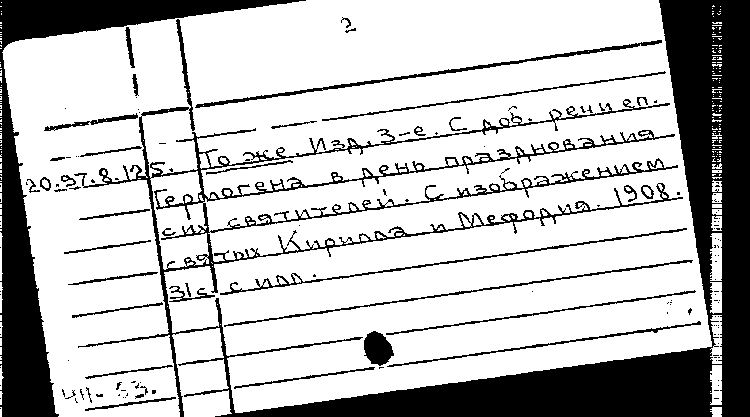 2
20.97.8.125. То же. Изд. 3-е. С доб. речи еп.
Гермогена в день празднования
сих святителей. С изображением
святых Кирилла и Мефодия. 1908.
31с. с илл.
ЧП- 53.